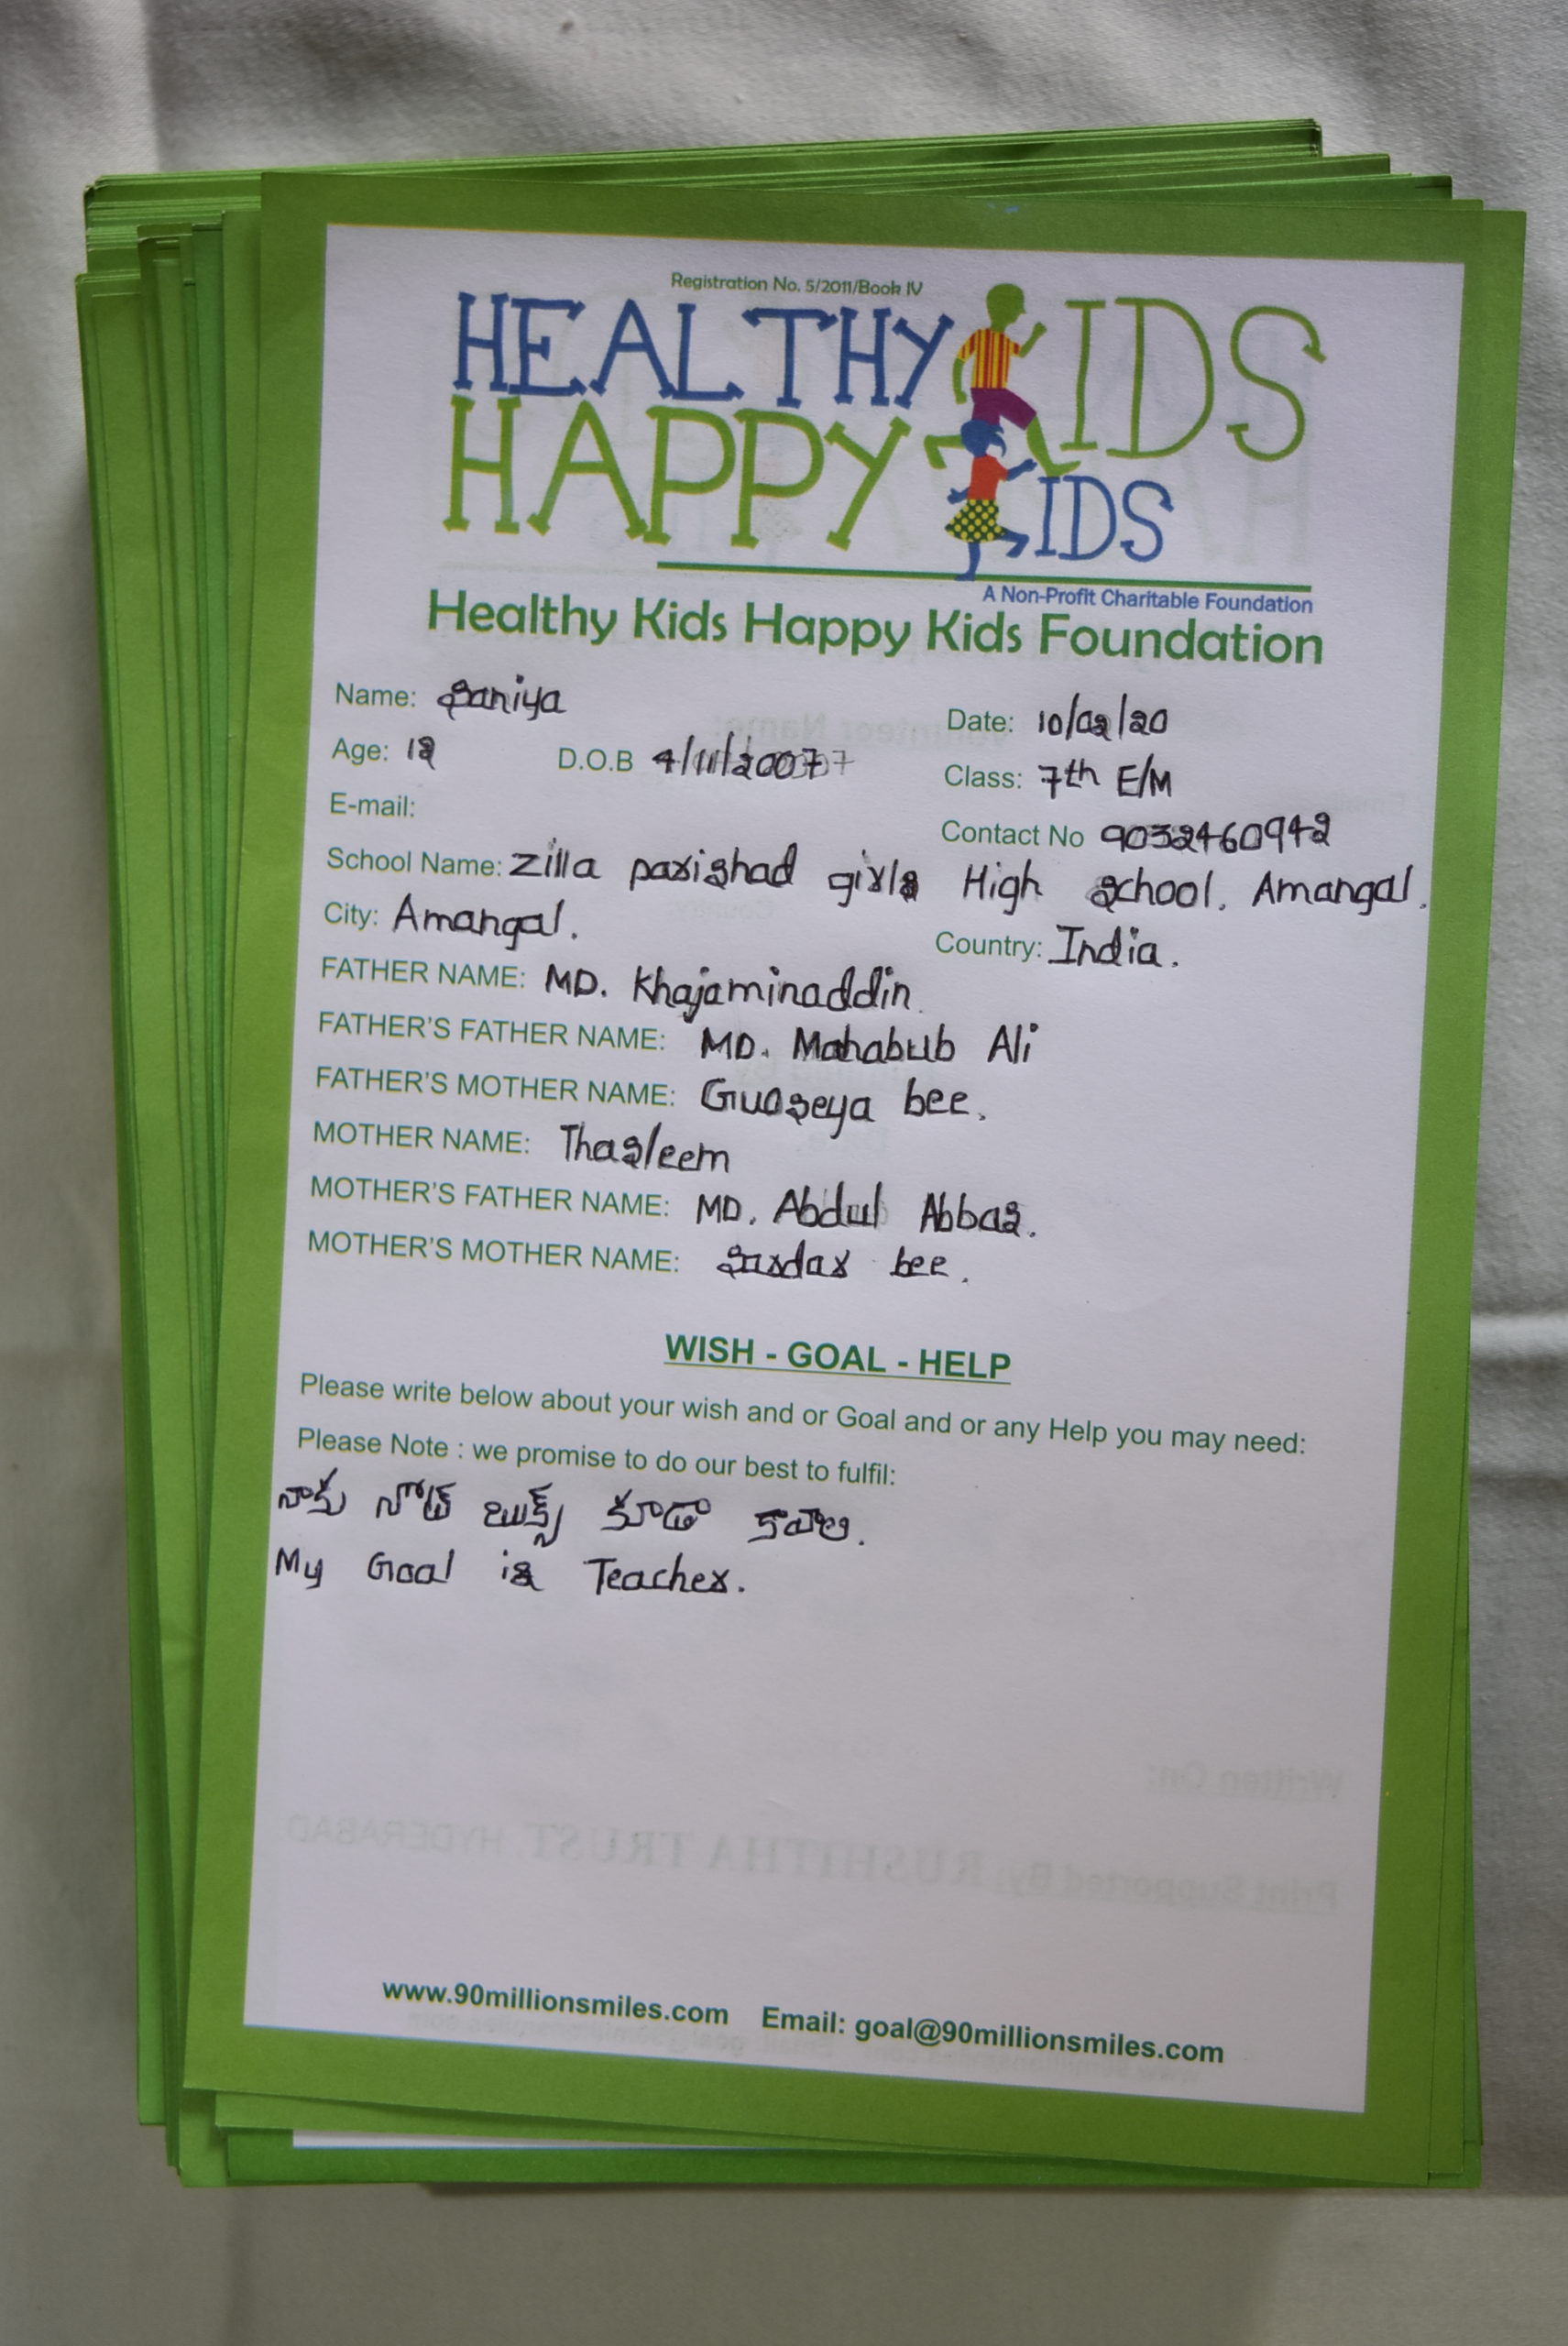 Registration No. 5/2011/Book IV
HEALTHY KIDS
HAPPY KIDS
A Non-Profit Charitable Foundation
Healthy Kids Happy Kids Foundation
Name: Saniya
Date: 10/02/20
Age: 12 D.O.B 4/11/2007
Class: 7th E/M
E-mail:
Contact No 9032460942
School Name: Zilla parishad girls High School. Amangal.
City: Amangal.
Country: India.
FATHER NAME: MD. Khajaminaddin
FATHER'S FATHER NAME: MD. Mahabub Ali
FATHER'S MOTHER NAME: Guoseya bee.
MOTHER NAME: Thasleem
MOTHER'S FATHER NAME: MD. Abdul Abbas.
MOTHER'S MOTHER NAME: Sardar bee.
WISH - GOAL - HELP
Please write below about your wish and or Goal and or any Help you may need:
Please Note : we promise to do our best to fulfil:
నాకు నోట్ బుక్స్ కూడా కావాలి.
My Goal is Teacher.
Written On:
Print Supported By: RUSHITHA TRUST, HYDERABAD
www.90millionsmiles.com Email: goal@90millionsmiles.com